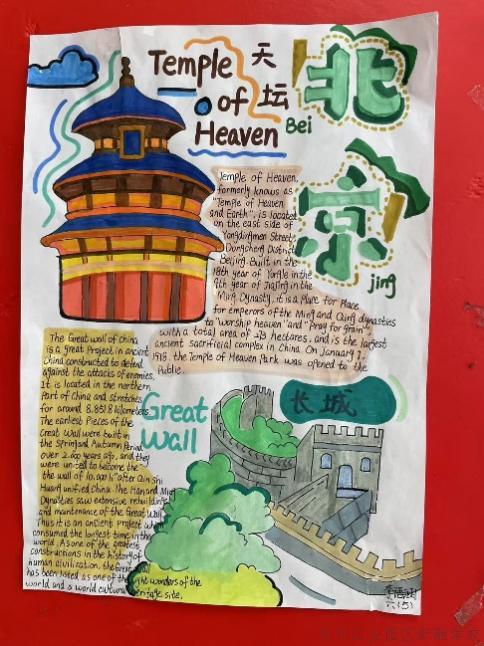 Temple 天
of 坛
Heaven
北
Bei
京
jing
Temple of Heaven,
formerly known as
"Temple of Heaven
and Earth", is located
on the east side of
Yongdingmen Street,
Dongcheng District
Beijing. Built in the
18th year of Yongle in the
9th year of Jiajing in the
Ming Dynasty, it is a Place for Place
for emperors of the Ming and Qing dynasties
to "worship heaven" and "Pray for grain"
with a total area of 273 hectares, and is the largest
ancient sacrificial complex in China. On January 1,
1918, the Temple of Heaven Park was opened to the
Public.
The Great wall of China
is a great Project in ancient
China constructed to defend
against the attacks of enemies.
It is located in the northern
Part of China and stretches
for around 8.8518 kilometers
The earliest Pieces of the
Great Wall were built in
the Spring and Autumn Period
over 2.600 years ago, and they
were united to become the
the wall of 10.000 li" after Qin Shi
Huang unified China. The Han and Ming
Dynasties saw extensive rebuilding
and maintenance of the Great Wall
Thus it is an ancient project which
consumed the longest time in the
world. As one of the greatest
constructions in the history of
human civilization, the
has been listed as one of the wonders of the
world and a world cultural heritage site.
Great
Wall
长城
六(5)